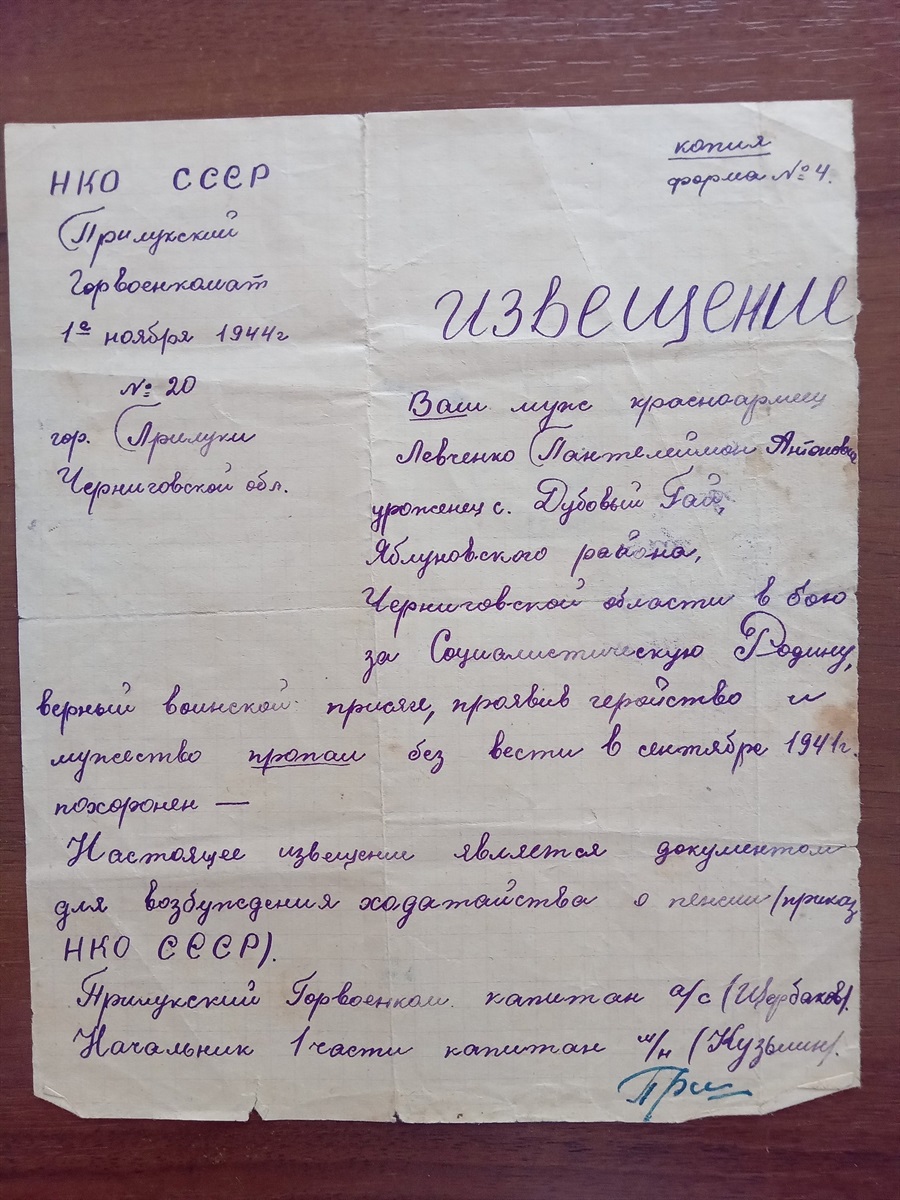 копия
форма № 4.
НКО СССР
Прилукский
Горвоенкомат
1е ноября 1944г
№ 20
гор. Прилуки
Черниговской обл.
извещение
Ваш муж красноармеец
Левченко Пантелеймон Антонович
уроженец с. Дубовый Гай,
Яблуновского района,
Черниговской области в бою
за Социалистическую Родину,
верный воинской присяге, проявив геройство и
мужество пропал без вести в сентябре 1941г.
похоронен —
Настоящее извещение является документом
для возбуждения ходатайства о пенсии /приказ
НКО СССР).
Прилукский Горвоенком. капитан а/с (Щербаков).
Начальник 1 части капитан и/н (Кузьмин).